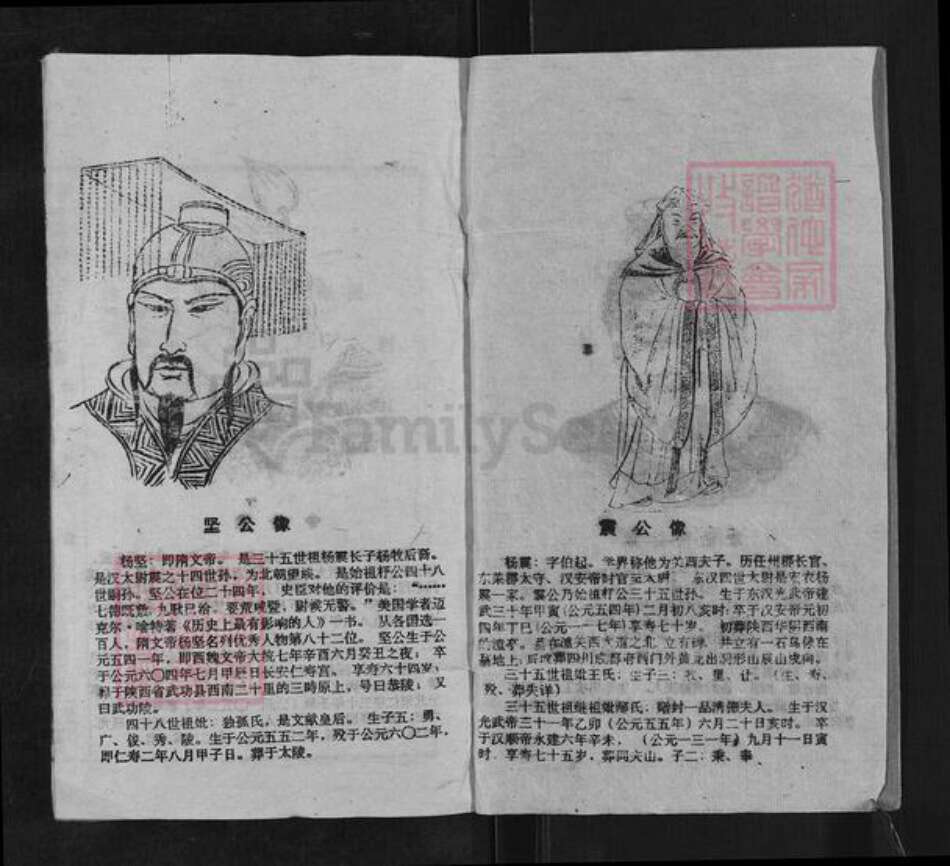 坚公像
杨坚：即隋文帝。是三十五世祖杨震长子杨牧后裔。
是汉太尉震之十四世孙，为北朝望族。是始祖杼公四十八
世嗣孙。坚公在位二十四年，史臣对他的评价是：“……
七德既敷，九歌已洽，要荒咸暨，尉候无警。”美国学者迈
克尔·哈特著《历史上最有影响的人》一书。从各国选一
百人，隋文帝杨坚名列优秀人物第八十二位。坚公生于公
元五四一年，即西魏文帝大统七年辛酉六月癸丑之夜；卒
于公元六〇四年七月甲 日长安仁寿宫。享寿六十四岁；
葬于陕西省武功县西南二十里的三畤原上，号曰泰陵；又
曰武功陵。
四十八世祖妣：独孤氏，是文献皇后。生子五：勇、
广、俊、秀、谅。生于公元五五二年，殁于公元六〇二年，
即仁寿二年八月甲子日。葬于太陵。
震公像
杨震：字伯起。 界称他为关西夫子。历任州郡长官、
东莱郡太守、汉安帝时官至太尉。东汉四世太尉是 农杨
震一家。震公乃始祖杼公三十五世孙。生于东汉光武帝建
武三十年甲寅（公元五四年）二月初八亥时；卒于汉安帝元初
四年丁巳（公元一一七年）享寿七十岁。初葬陕西华阴西南
的潼亭。 在潼关西大道之北，立有碑，并立有一石鸟候在
墓地上；后 葬四川成都 西门外黄龙出洞形山辰山戌向。
三十五世祖妣王氏：生子三：牧、里、让。（生、寿、
殁、葬失详）
三十五世祖继祖妣 氏：赠封一品清德夫人。生于汉
光武帝三十一年乙卯（公元五五年）六月二十日亥时。卒
于汉顺帝永建六年辛未，（公元一三一年）九月十一日寅
时，享寿七十五岁，葬同夫山。子二：秉、奉